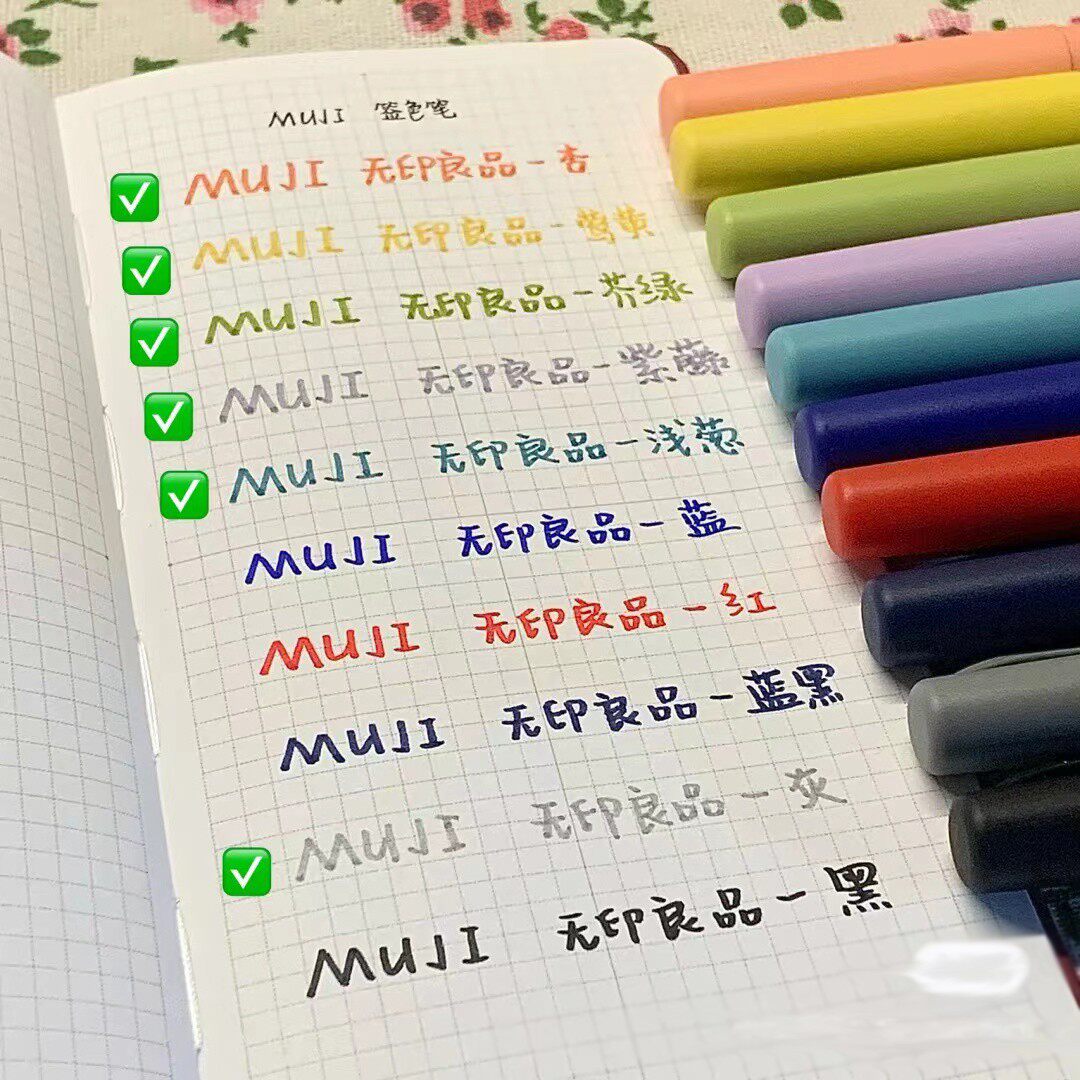 MUJI 签色笔
MUJI 无印良品-杏
MUJI 无印良品-莺黄
MUJI 无印良品-芥绿
MUJI 无印良品-紫藤
MUJI 无印良品-浅葱
MUJI 无印良品-蓝
MUJI 无印良品-红
MUJI 无印良品-蓝黑
MUJI 无印良品-灰
MUJI 无印良品-黑